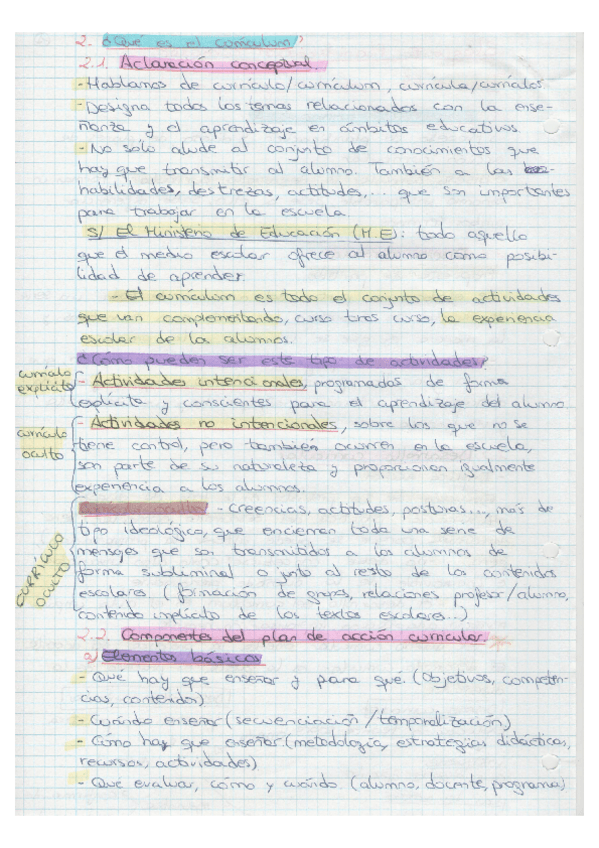 2. ¿Qué es el currículum?
2.1. Aclaración conceptual.
- Hablamos de currículo/currículum, currícula/currículos.
- Designa todos los temas relacionados con la ense-
ñanza y el aprendizaje en ámbitos educativos.
- No solo alude al conjunto de conocimientos que
hay que transmitir al alumno. También a las
habilidades, destrezas, actitudes,... que son importantes
para trabajar en la escuela.
S/ El Ministerio de Educación (M.E): todo aquello
que el medio escolar ofrece al alumno como posibi-
lidad de aprender.
- El currículum es todo el conjunto de actividades
que van complementando, curso tras curso, la experiencia
escolar de la alumnos.
¿Cómo pueden ser este tipo de actividades?
currículo
explícito
- Actividades intencionales, programadas de forma
explícita y conscientes para el aprendizaje del alumno.
currículo
oculto
- Actividades no intencionales, sobre las que no se
tiene control, pero también ocurren en la escuela,
son parte de su naturaleza y proporcionan igualmente
experiencia a los alumnos.
CURRÍCULO
OCULTO
- Creencias, actitudes, posturas..., más de
tipo ideológico, que encierran toda una serie de
mensajes que son transmitidos a los alumnos de
forma subliminal o junto al resto de los contenidos
escolares (formación de grupos, relaciones profesor/alumno,
contenido implícito de los textos escolares...)
2.2. Componentes del plan de acción curricular.
a) Elementos básicos
- Qué hay que enseñar y para qué. (Objetivos, competen-
cias, contenidos)
- Cuándo enseñar (secuenciación/temporalización)
- Cómo hay que enseñar (metodología, estrategias didácticas,
recursos, actividades)
- Que evaluar, cómo y cuándo. (alumno, docente, programa)